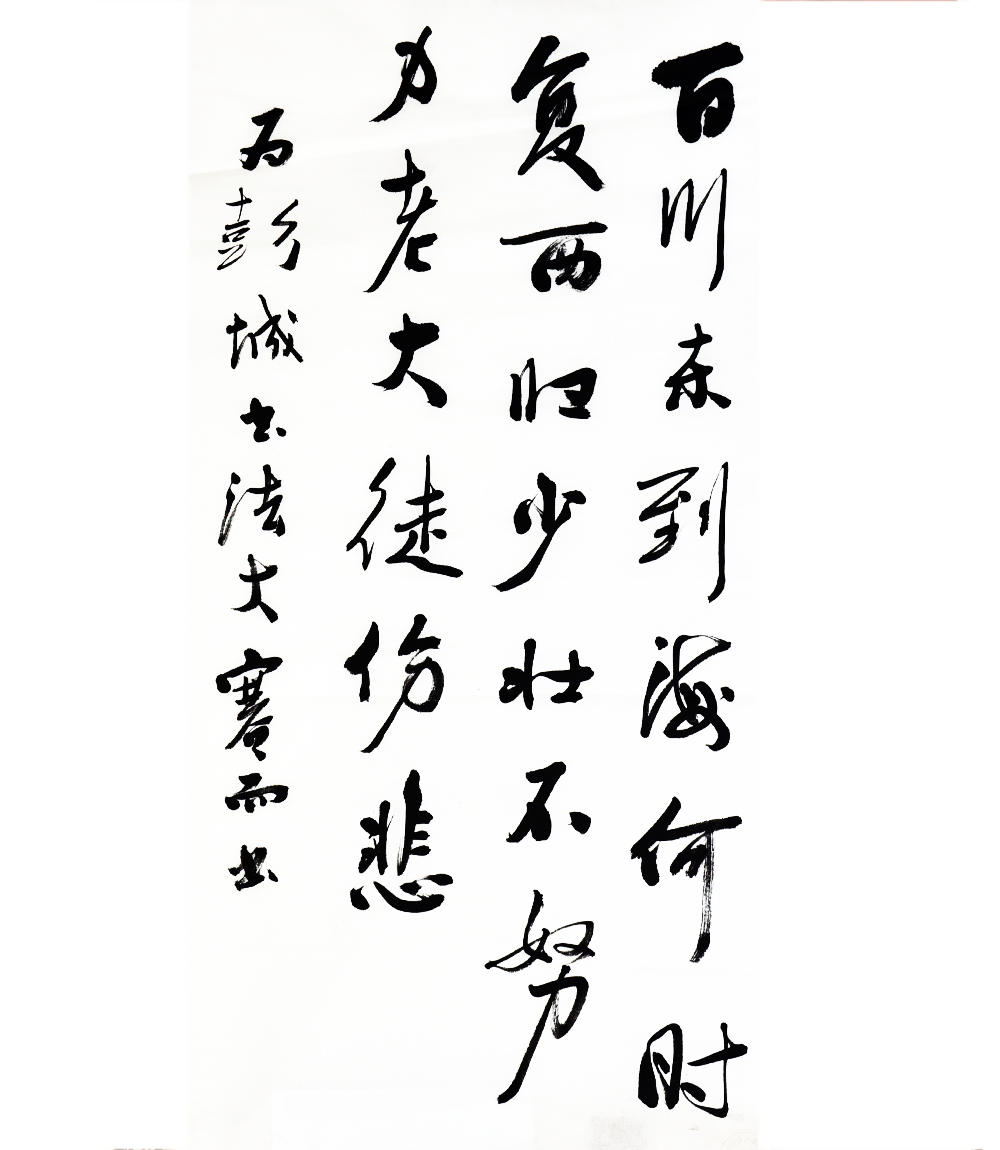 百川东到海何时
复西归少壮不努
力老大徒伤悲
为彭城书法大赛而书